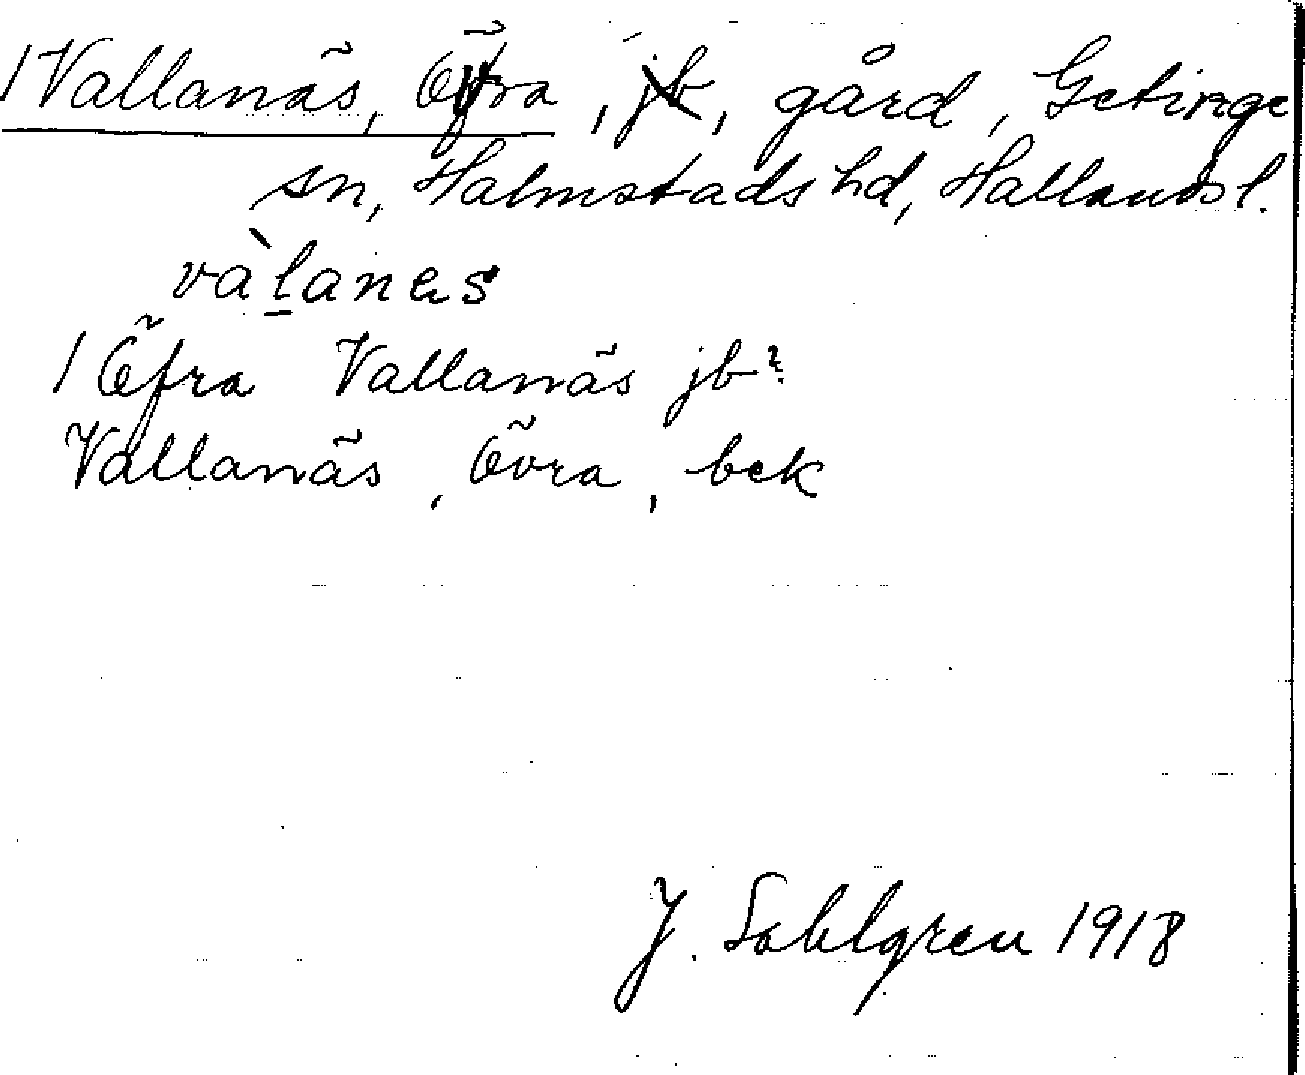 / Vallanäs, Övra, jb, gård, Getinge
sn, Halmstads hd, Hallands l.
và̱lanas
/ Öfra Vallanäs jb?
Vallanäs, Övra, bek
J. Sahlgren 1918